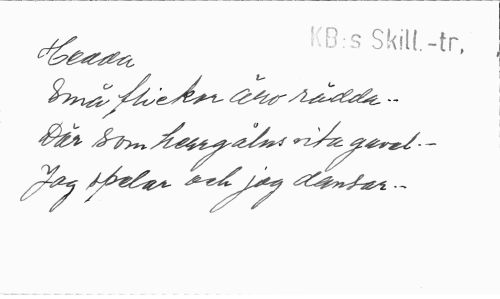 KB:s Skill.-tr.
Hedda
Små flickor äro rädda..
Där som herrgålns vita gavel..
Jag spelar och jag dansar..